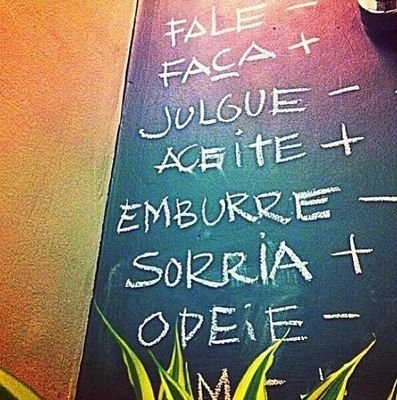 FALE -
FAÇA +
JULGUE -
ACEITE +
EMBURRE -
SORRIA +
ODEIE -